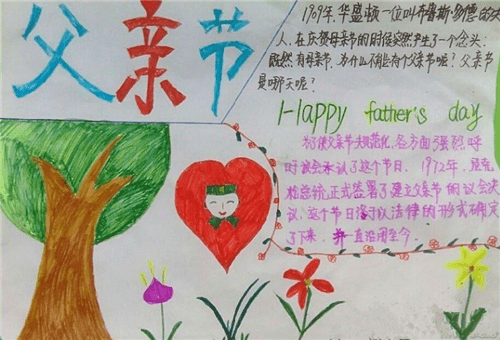 父亲节
1909年,华盛顿一位叫布鲁斯多德的夫
人,在庆贺母亲节的时候突然产生了一个念头:
既然有母亲节,为什么不能有个父亲节呢?父亲节
是哪天呢?
Happy father's day
为使父亲节规范化,各方面强烈呼
吁议会承认了这个节日,1972年,尼克
松总统正式签署了建立父亲节的议会决
议,这个节日终于以法律的形式确定
了下来,并一直沿用至今.